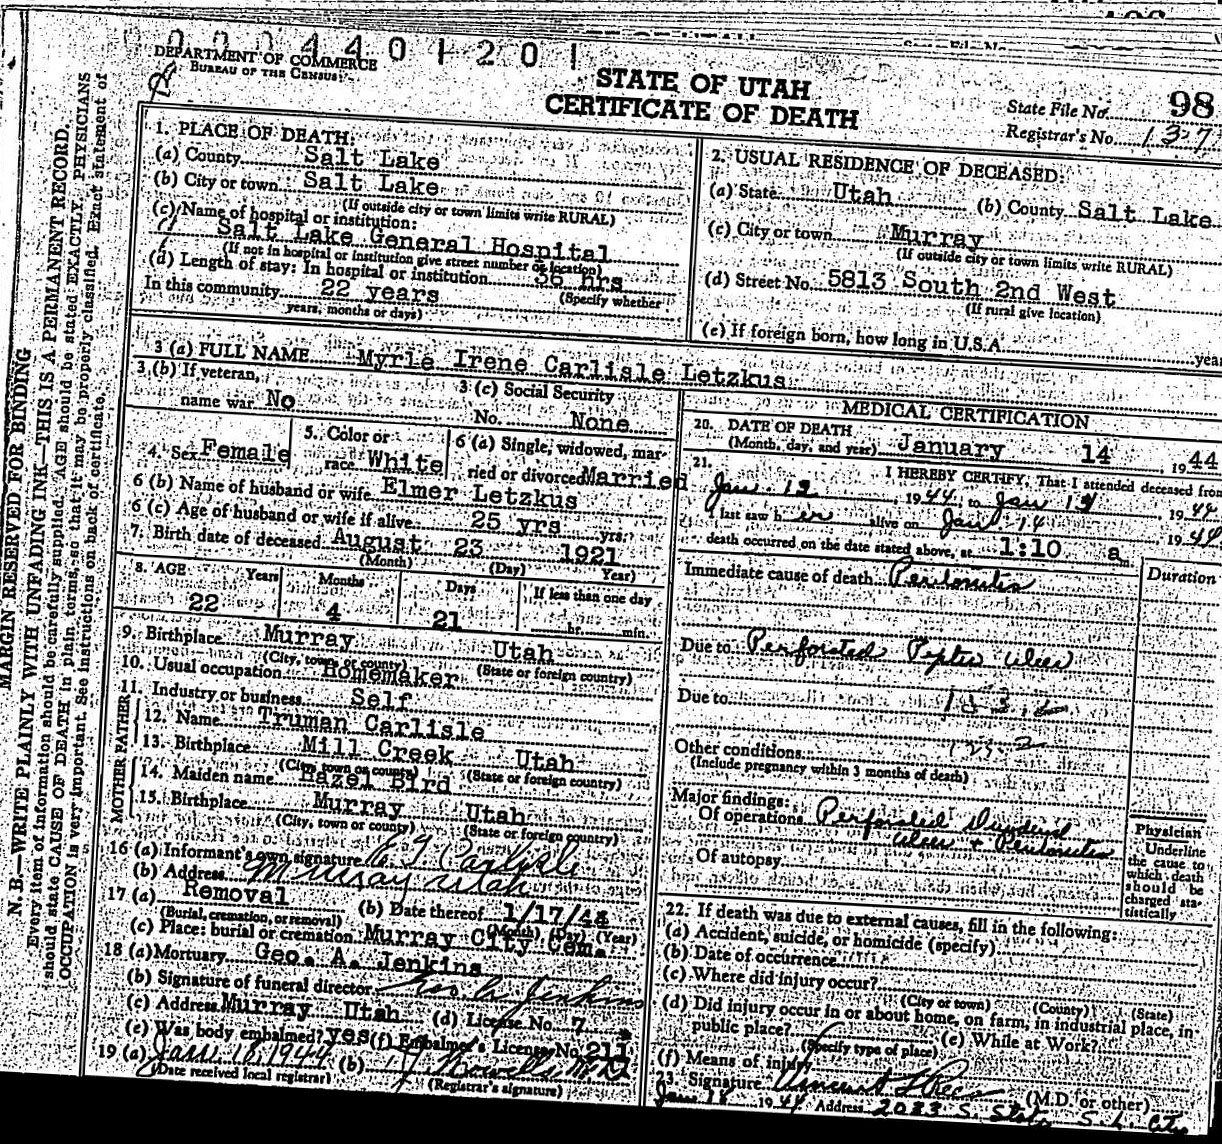 0004401201
DEPARTMENT OF COMMERCE
BUREAU OF THE CENSUS
STATE OF UTAH
CERTIFICATE OF DEATH
State File No. 98
Registrar's No. 137
MARGIN RESERVED FOR BINDING
N. B.—WRITE PLAINLY WITH UNFADING INK—THIS IS A PERMANENT RECORD.
Every item of information should be carefully supplied. AGE should be stated EXACTLY. PHYSICIANS
should state CAUSE OF DEATH in plain terms, so that it may be properly classified. Exact statement of
OCCUPATION is very important. See instructions on back of certificate.
1. PLACE OF DEATH:
(a) County Salt Lake
(b) City or town Salt Lake
(If outside city or town limits write RURAL)
(c) Name of hospital or institution:
Salt Lake General Hospital
(If not in hospital or institution give street number or location)
(d) Length of stay: In hospital or institution 36 hrs
(Specify whether
In this community 22 years
years, months or days)
2. USUAL RESIDENCE OF DECEASED:
(a) State Utah (b) County Salt Lake
(c) City or town Murray
(If outside city or town limits write RURAL)
(d) Street No. 5813 South 2nd West
(If rural give location)
(e) If foreign born, how long in U.S.A. year
3 (a) FULL NAME Myrle Irene Carlisle Letzkus
3 (b) If veteran,
name war No
3 (c) Social Security
No. None
4. Sex Female
5. Color or
race White
6 (a) Single, widowed, mar-
ried or divorced Married
6 (b) Name of husband or wife Elmer Letzkus
6 (c) Age of husband or wife if alive 25 yrs yrs.
7. Birth date of deceased August 23 1921
(Month) (Day) Year)
8. AGE Years Months Days If less than one day
22 4 21 hr. min.
9. Birthplace Murray Utah
(City, town or county) (State or foreign country)
10. Usual occupation Homemaker
11. Industry or business Self
FATHER
12. Name Truman Carlisle
13. Birthplace Mill Creek Utah
(City, town or county) (State or foreign country)
MOTHER
14. Maiden name Hazel Bird
15. Birthplace Murray Utah
(City, town or county) (State or foreign country)
16 (a) Informant's own signature E. T. Carlisle
(b) Address Murray Utah
17 (a) Removal (b) Date thereof 1/17/44
(Burial, cremation, or removal) (Month) (Day) (Year)
(c) Place: burial or cremation Murray City Cem.
18 (a) Mortuary Geo. A. Jenkins
(b) Signature of funeral director Geo. A. Jenkins
(c) Address Murray Utah (d) License No. 7
(e) Was body embalmed? yes (f) Embalmer's License No. 211
19 (a) Jan. 16, 1944 (b)
(Date received local registrar) (Registrar's signature)
MEDICAL CERTIFICATION
20. DATE OF DEATH
(Month, day, and year) January 14, 1944
21. I HEREBY CERTIFY, That I attended deceased from
Jan 12, 1944 to Jan 14 1944
I last saw her alive on Jan 14 1944
death occurred on the date stated above, at 1:10 a m.
Immediate cause of death Peritonitis
Duration
Due to Perforated Peptic Ulcer
Due to
Other conditions
(Include pregnancy within 3 months of death)
Major findings:
Of operations Perforated Duodenal
Ulcer + Peritonitis
Of autopsy
Physician
Underline
the cause to
which death
should be
charged sta-
tistically
22. If death was due to external causes, fill in the following:
(a) Accident, suicide, or homicide (specify)
(b) Date of occurrence
(c) Where did injury occur?
(City or town) (County) (State)
(d) Did injury occur in or about home, on farm, in industrial place, in
public place? (e) While at Work?
(Specify type of place)
(f) Means of injury
23. Signature Vincent L Rees (M.D. or other)
Jan 18 1944 Address 2033 S. State S. L. City